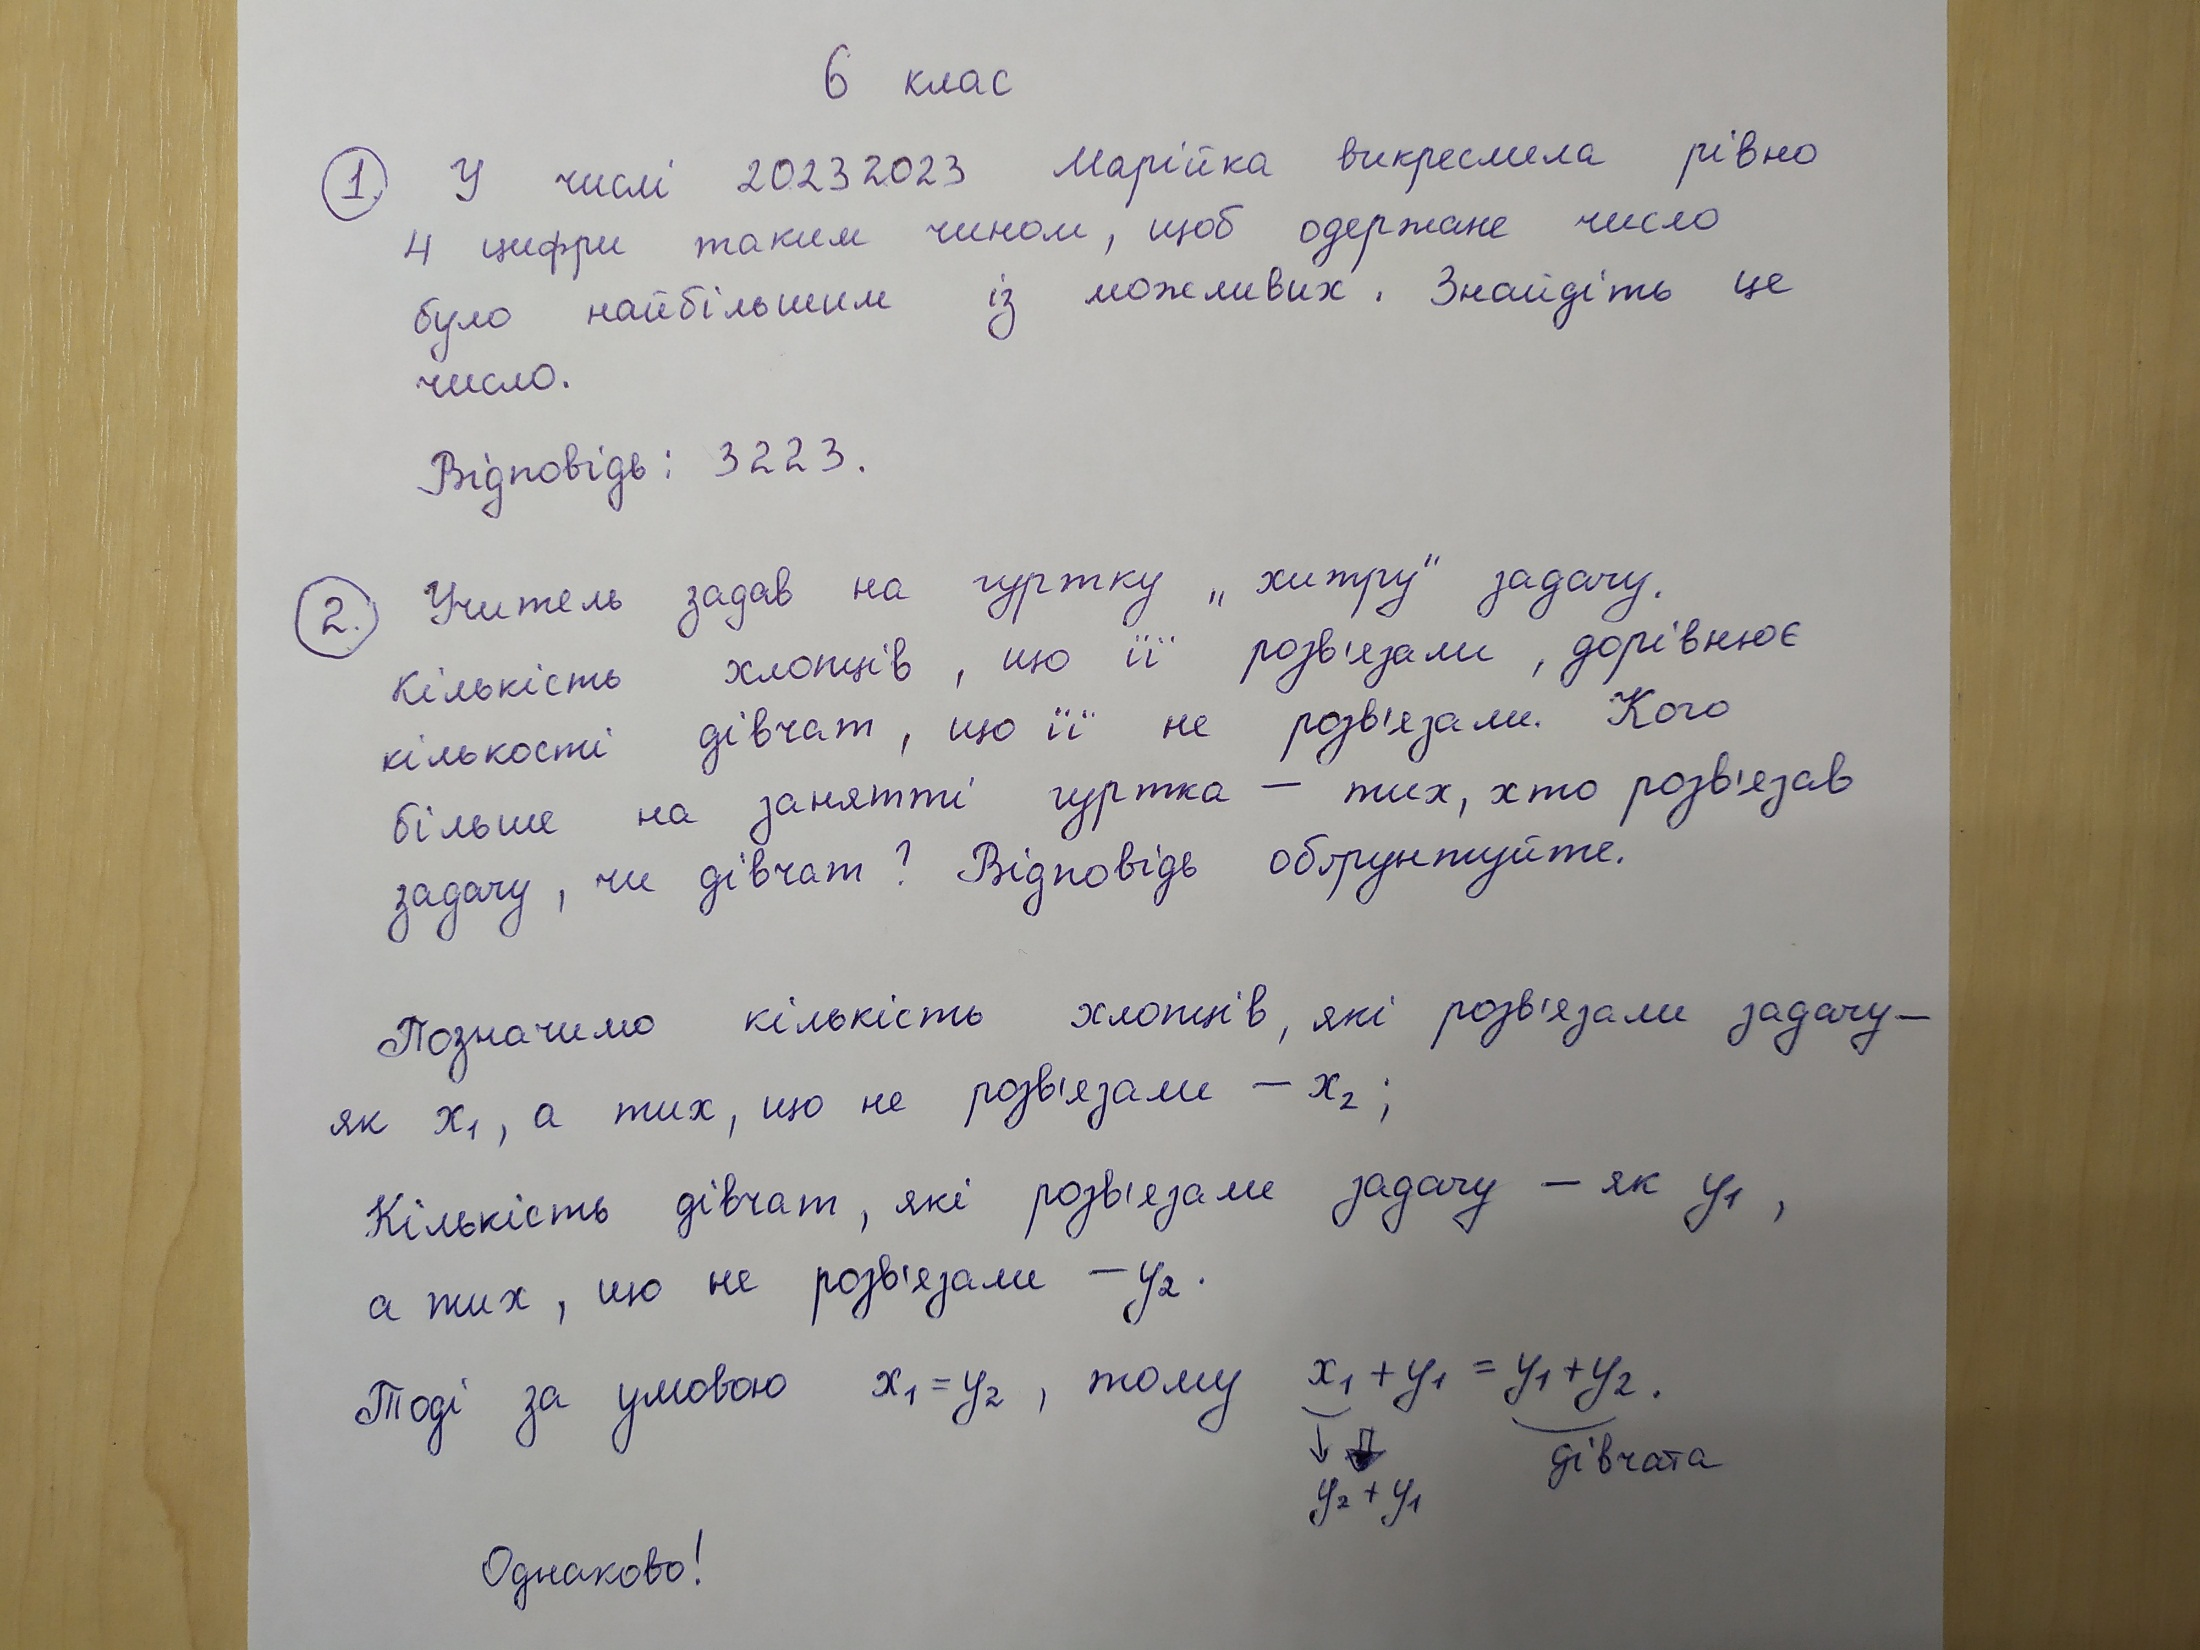 6 клас
1. У числі 20232023 Марійка викреслила рівно
4 цифри таким чином, щоб одержане число
було найбільшим із можливих. Знайдіть це
число.
Відповідь: 3223.
2. Учитель задав на гуртку „хитру" задачу.
Кількість хлопців, що її розв'язали, дорівнює
кількості дівчат, що її не розв'язали. Кого
більше на занятті гуртка – тих, хто розв'язав
задачу, чи дівчат? Відповідь обґрунтуйте.
Позначимо кількість хлопців, які розв'язали задачу –
як x₁, а тих, що не розв'язали – x₂;
Кількість дівчат, які розв'язали задачу – як y₁,
а тих, що не розв'язали – y₂.
Тоді за умовою x₁ = y₂, тому x₁ + y₁ = y₁ + y₂.
↓ ⇓ дівчата
y₂ + y₁
Однаково!